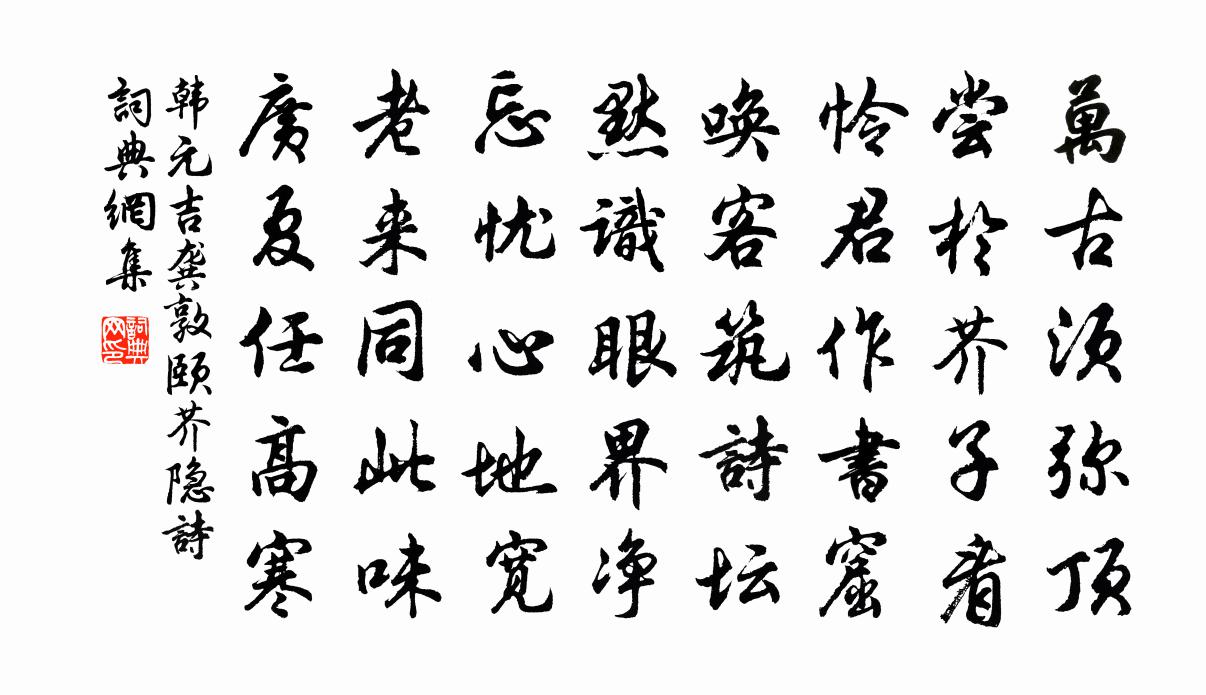 萬古须弥顶
尝於芥子看
怜君作書窟
唤客筑詩坛
默識眼界净
忘忧心地宽
老来同此味
廣夏任高寒
韩元吉龚敦颐芥隐詩
詞典網集
詞典网印